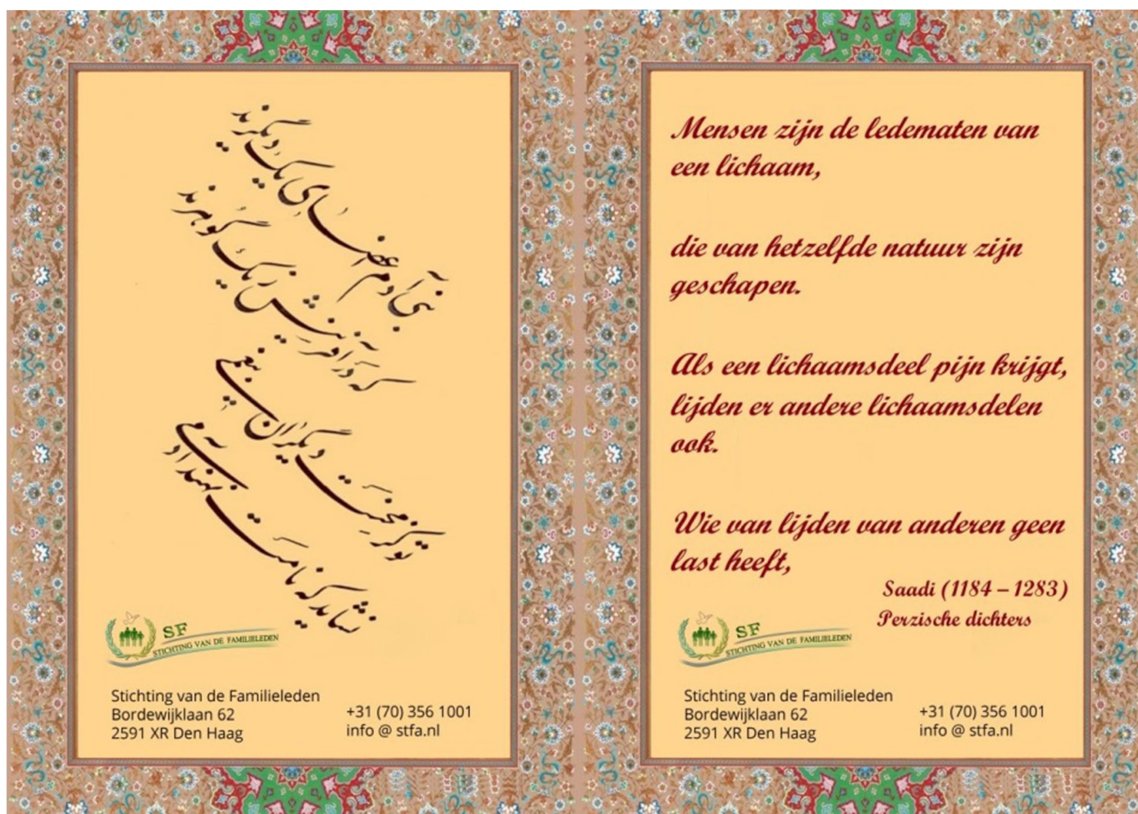 بنی آدم اعضای یکدیگرند
که در آفرینش ز یک گوهرند
تو کز محنت دیگران بیغمی
نشاید که نامت نهند آدمی
SF
STICHTING VAN DE FAMILIELEDEN
Stichting van de Familieleden
Bordewijklaan 62
2591 XR Den Haag
+31 (70) 356 1001
info @ stfa.nl
Mensen zijn de ledematen van
een lichaam,
die van hetzelfde natuur zijn
geschapen.
Als een lichaamsdeel pijn krijgt,
lijden er andere lichaamsdelen
ook.
Wie van lijden van anderen geen
last heeft,
Saadi (1184 – 1283)
Perzische dichters
SF
STICHTING VAN DE FAMILIELEDEN
Stichting van de Familieleden
Bordewijklaan 62
2591 XR Den Haag
+31 (70) 356 1001
info @ stfa.nl